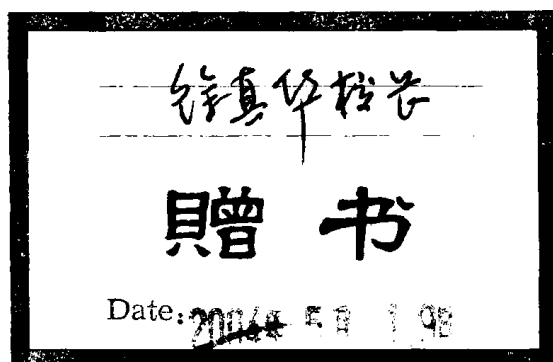 徐真华校长
贈 书
Date: 2004年 5月 19日